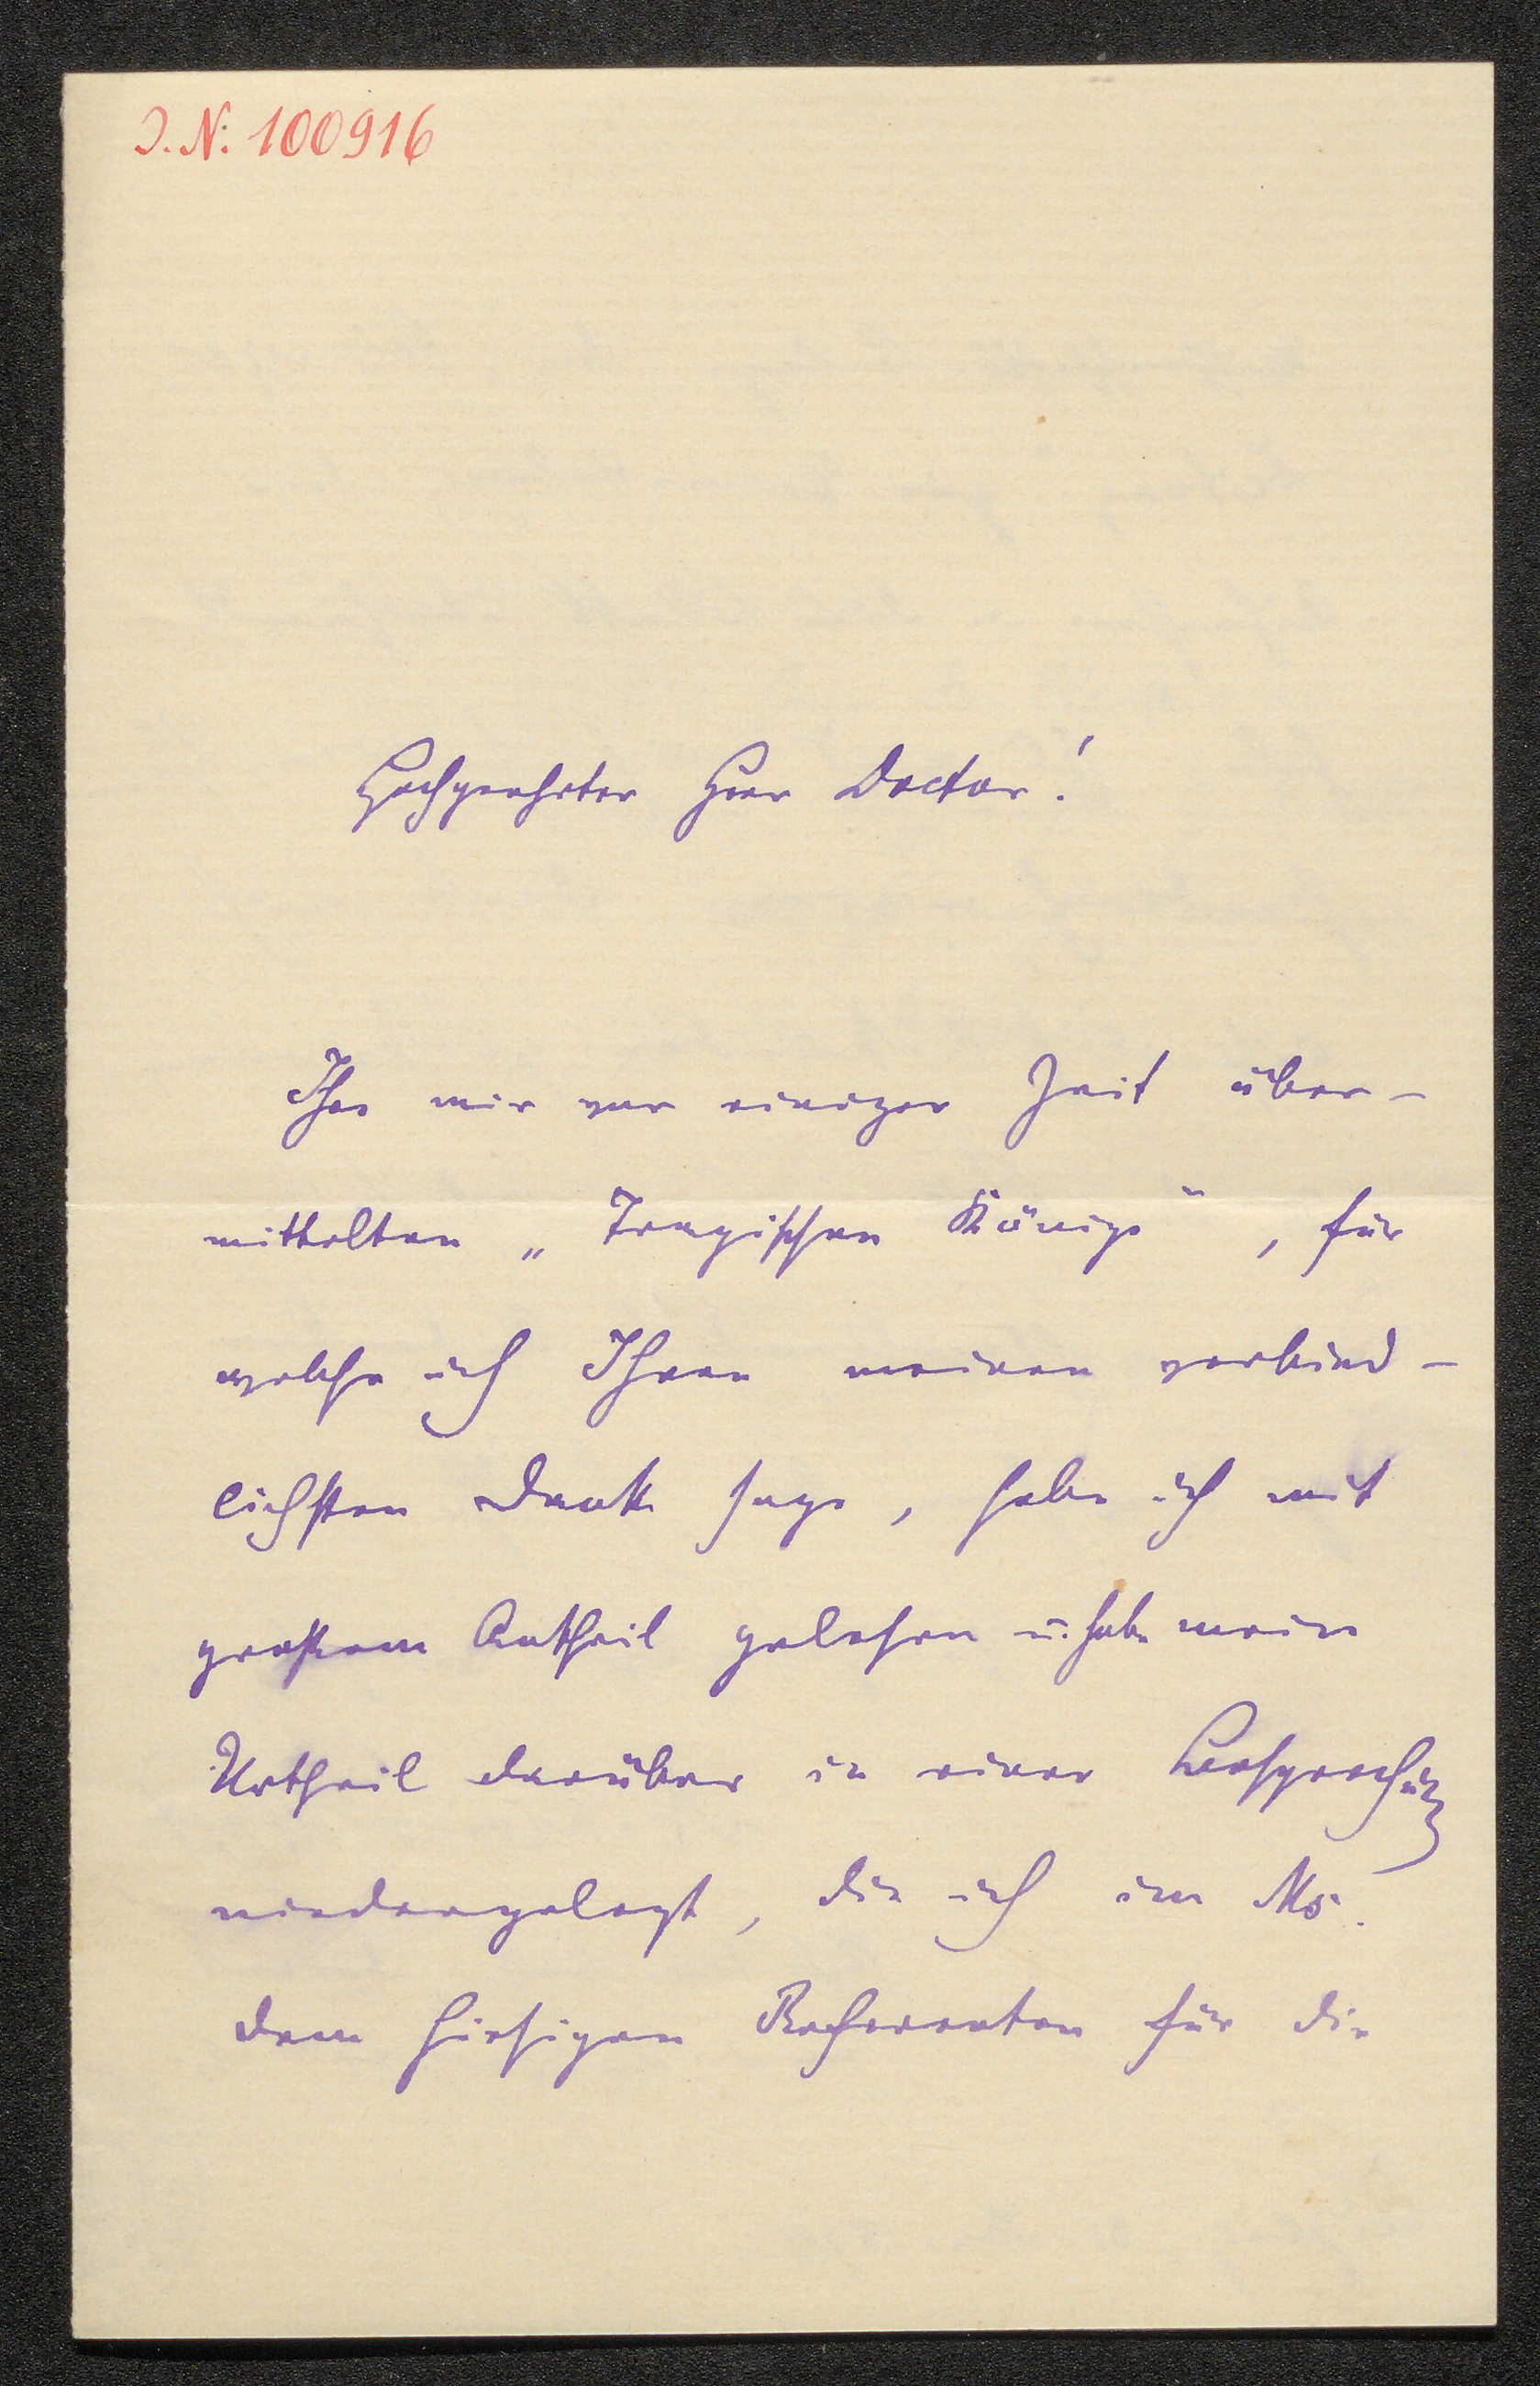 J. N. 100916
Hochgeehrter Herr Doctor!
Ihre mir vor einiger Zeit über-
mittelten „Tragischen Könige", für
welche ich Ihnen meinen verbind-
lichsten Dank sage, habe ich mit
großem Antheil gelesen u. habe mein
Urtheil darüber in einer Besprechung
niedergelegt, die ich im Ms.
dem hiesigen Referenten für die